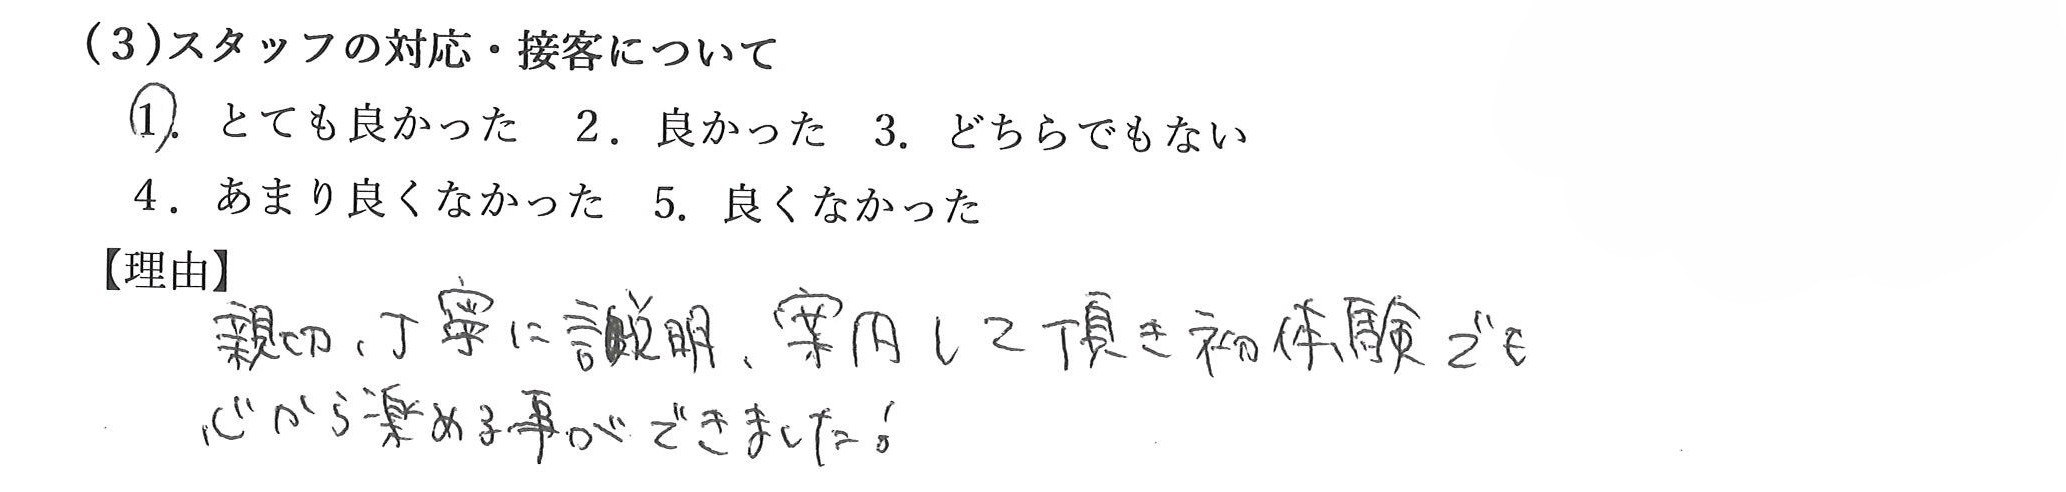 (3)スタッフの対応・接客について
1. とても良かった 2. 良かった 3. どちらでもない
4. あまり良くなかった 5. 良くなかった
【理由】
親切、丁寧に説明、案内して頂き初体験でも
心から楽める事ができました!